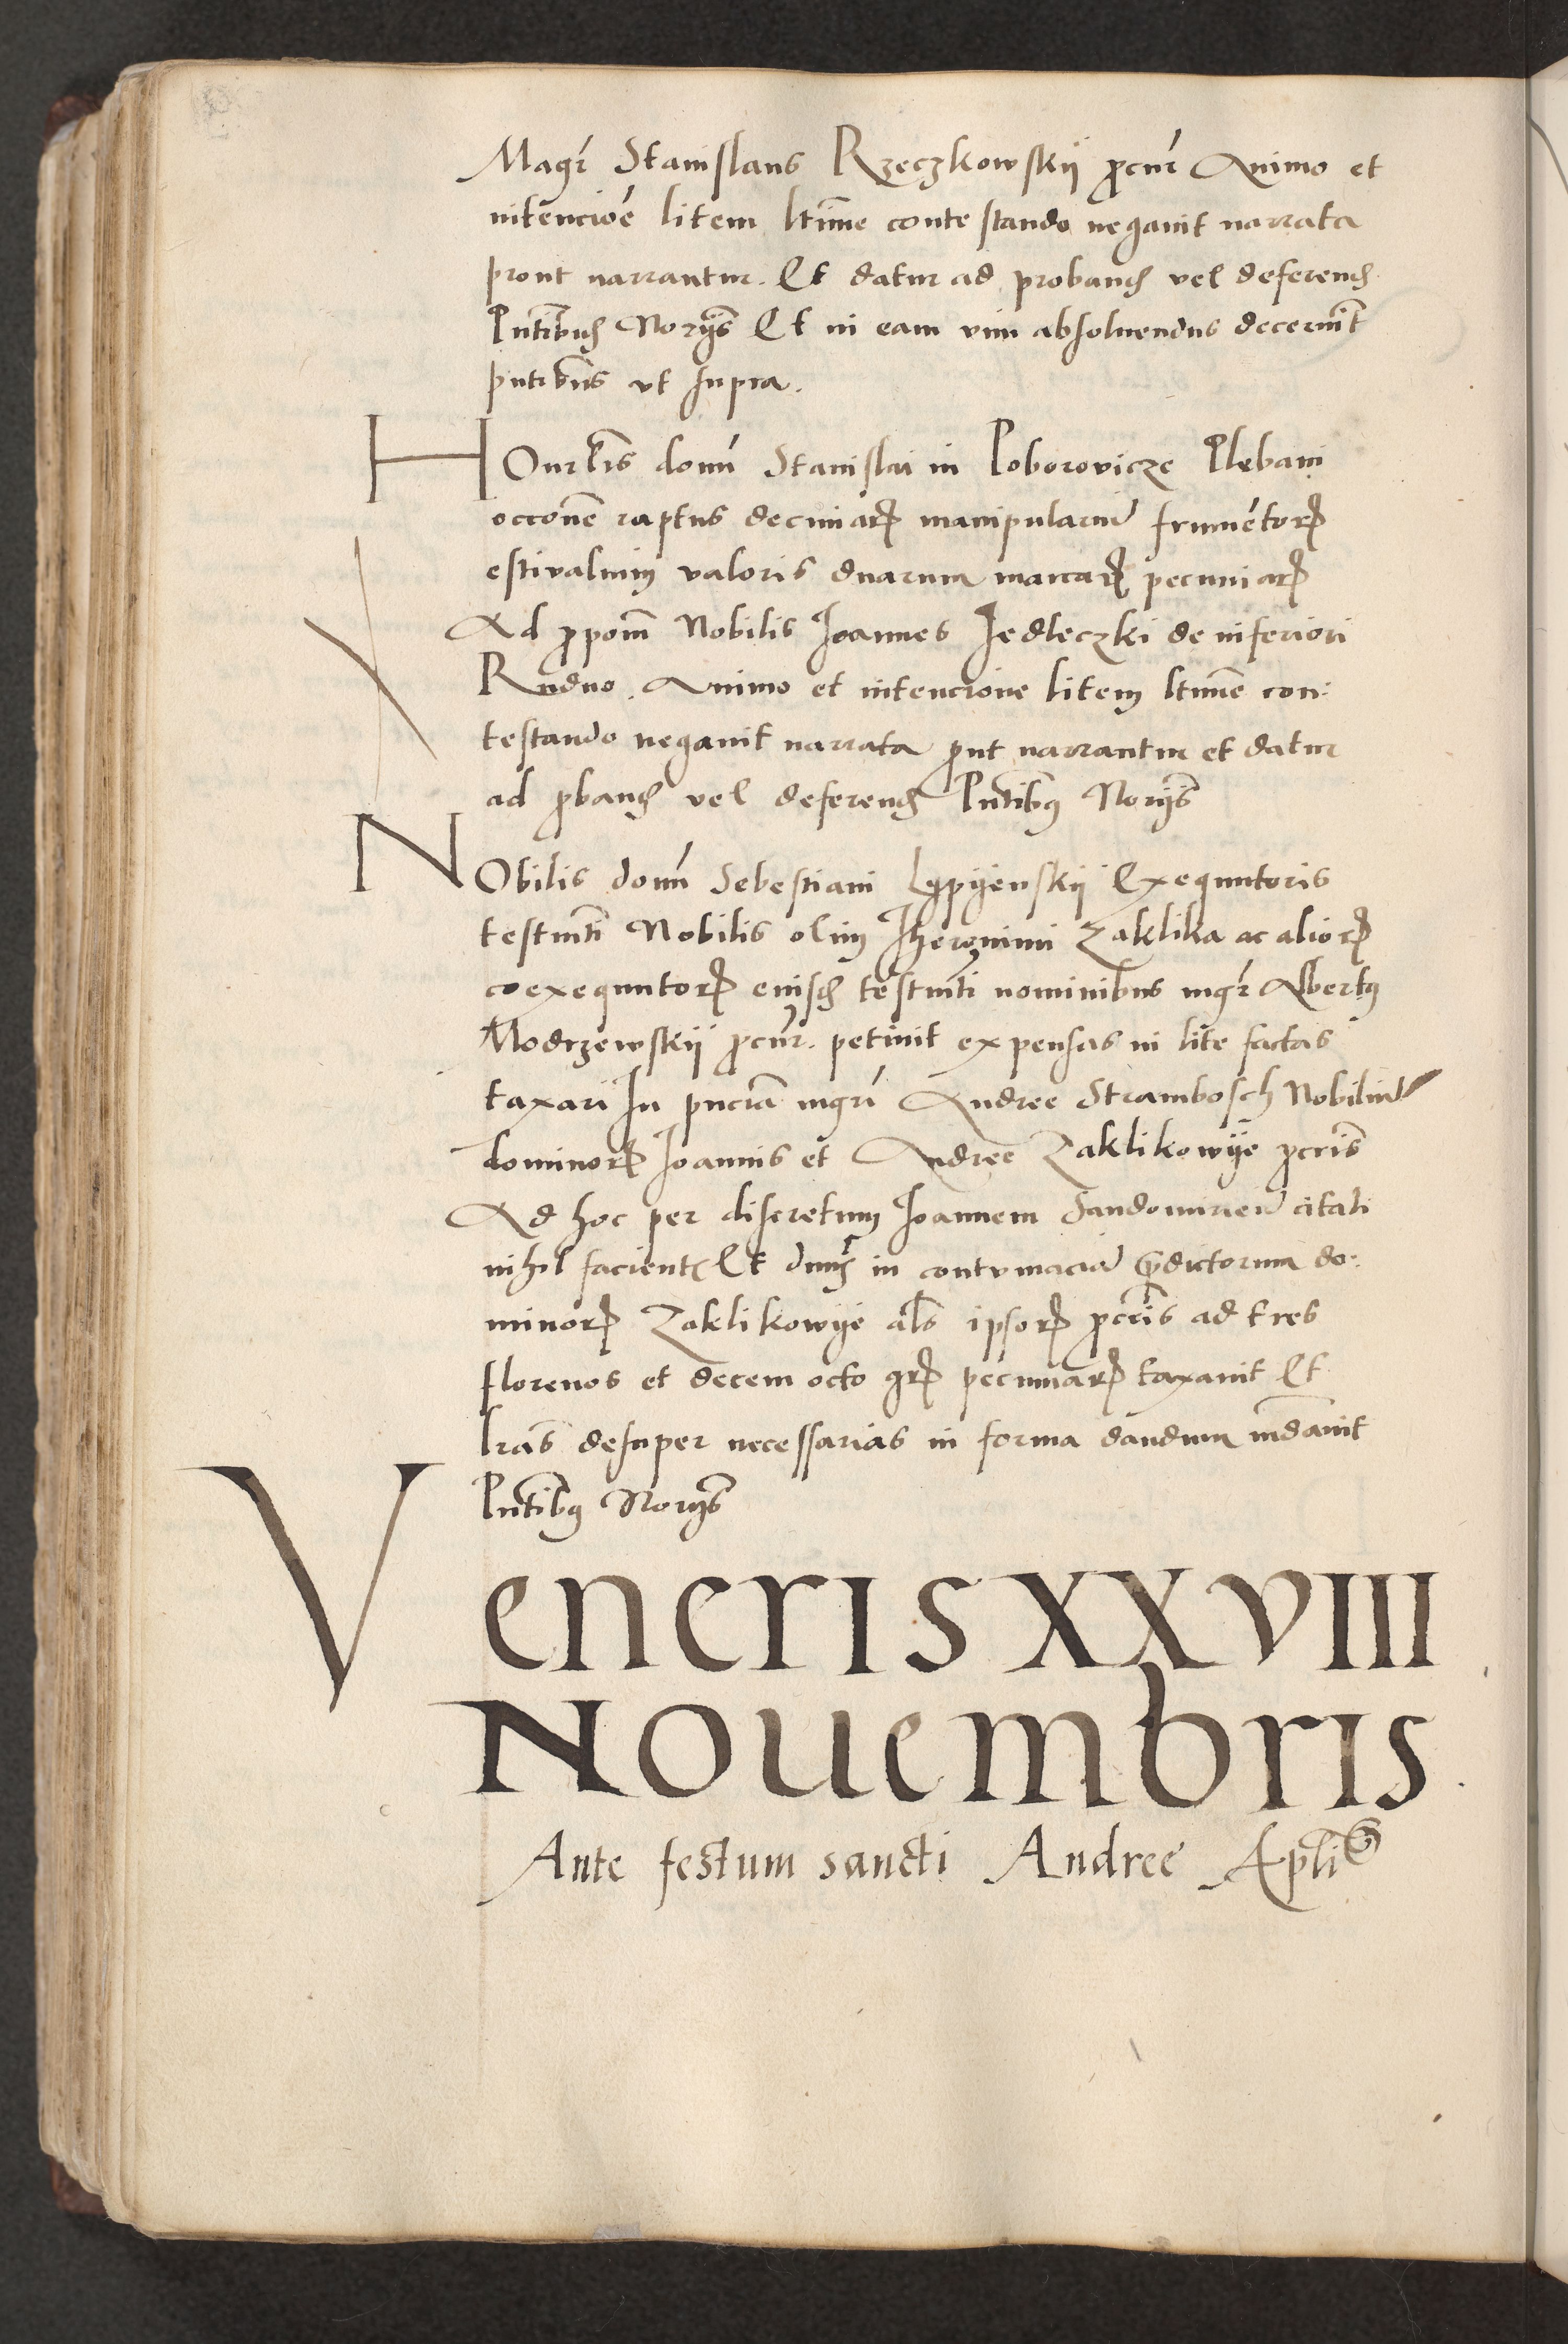 Magr̄ Stanislaus Rzeczkowskij ꝓcur̄ Animo et
intencioē litem ltīme conte stando negauit narrata
prout narrantur. Et datur ad probanđ vel deferenđ
Pntibus Norijs Et in eam vim absoluendus decernit
pntibus vt supra.
HOnrlis domī Stanislai in Poborovicze Plebani
occōnē raptus decimarꝝ manipulariū frumētorꝝ
estiualium valoris duarum marcarꝝ pecuniarꝝ
Ad ꝓpoīm Nobilis Joannes Jedleczki de inferiori
Rudno. Animo et intencione litem ltīme con:
testando negauit narrata ꝓut narrantur et datur
ad ꝓbanđ vel deferenđ Pntibꝰ Norijs
NObilis domī Sebestiani Lypijenskij Exequutoris
testmti Nobilis olim Jheronimi Zaklika ac aliorꝝ
coexequutorꝝ eiusđ testmti nominibus mgr̄ Albertꝰ
Modrzewskij ꝓcur̄. petiuit expensas in lite factas
taxari In pnciā mgrī Andree Strambosch Nobiliū
dominorꝝ Joannis et Andree Zaklikowije ꝓcrīs
Ad hoc per discretum Joannem Sandomirień citati
nihil facientꝭ Et dnus in contumaciā p̄dictorum do:
minorꝝ Zaklikowije als ipsorꝝ ꝓcrīs ad tres
florenos et decem octo grꝝ pecuniarꝝ taxauit Et
lrās desuper necessarias in forma dandum mdauit
Pntibꝰ Norijs
Veneris XXVIII
Nouembris
Ante festum sancti Andree Apli